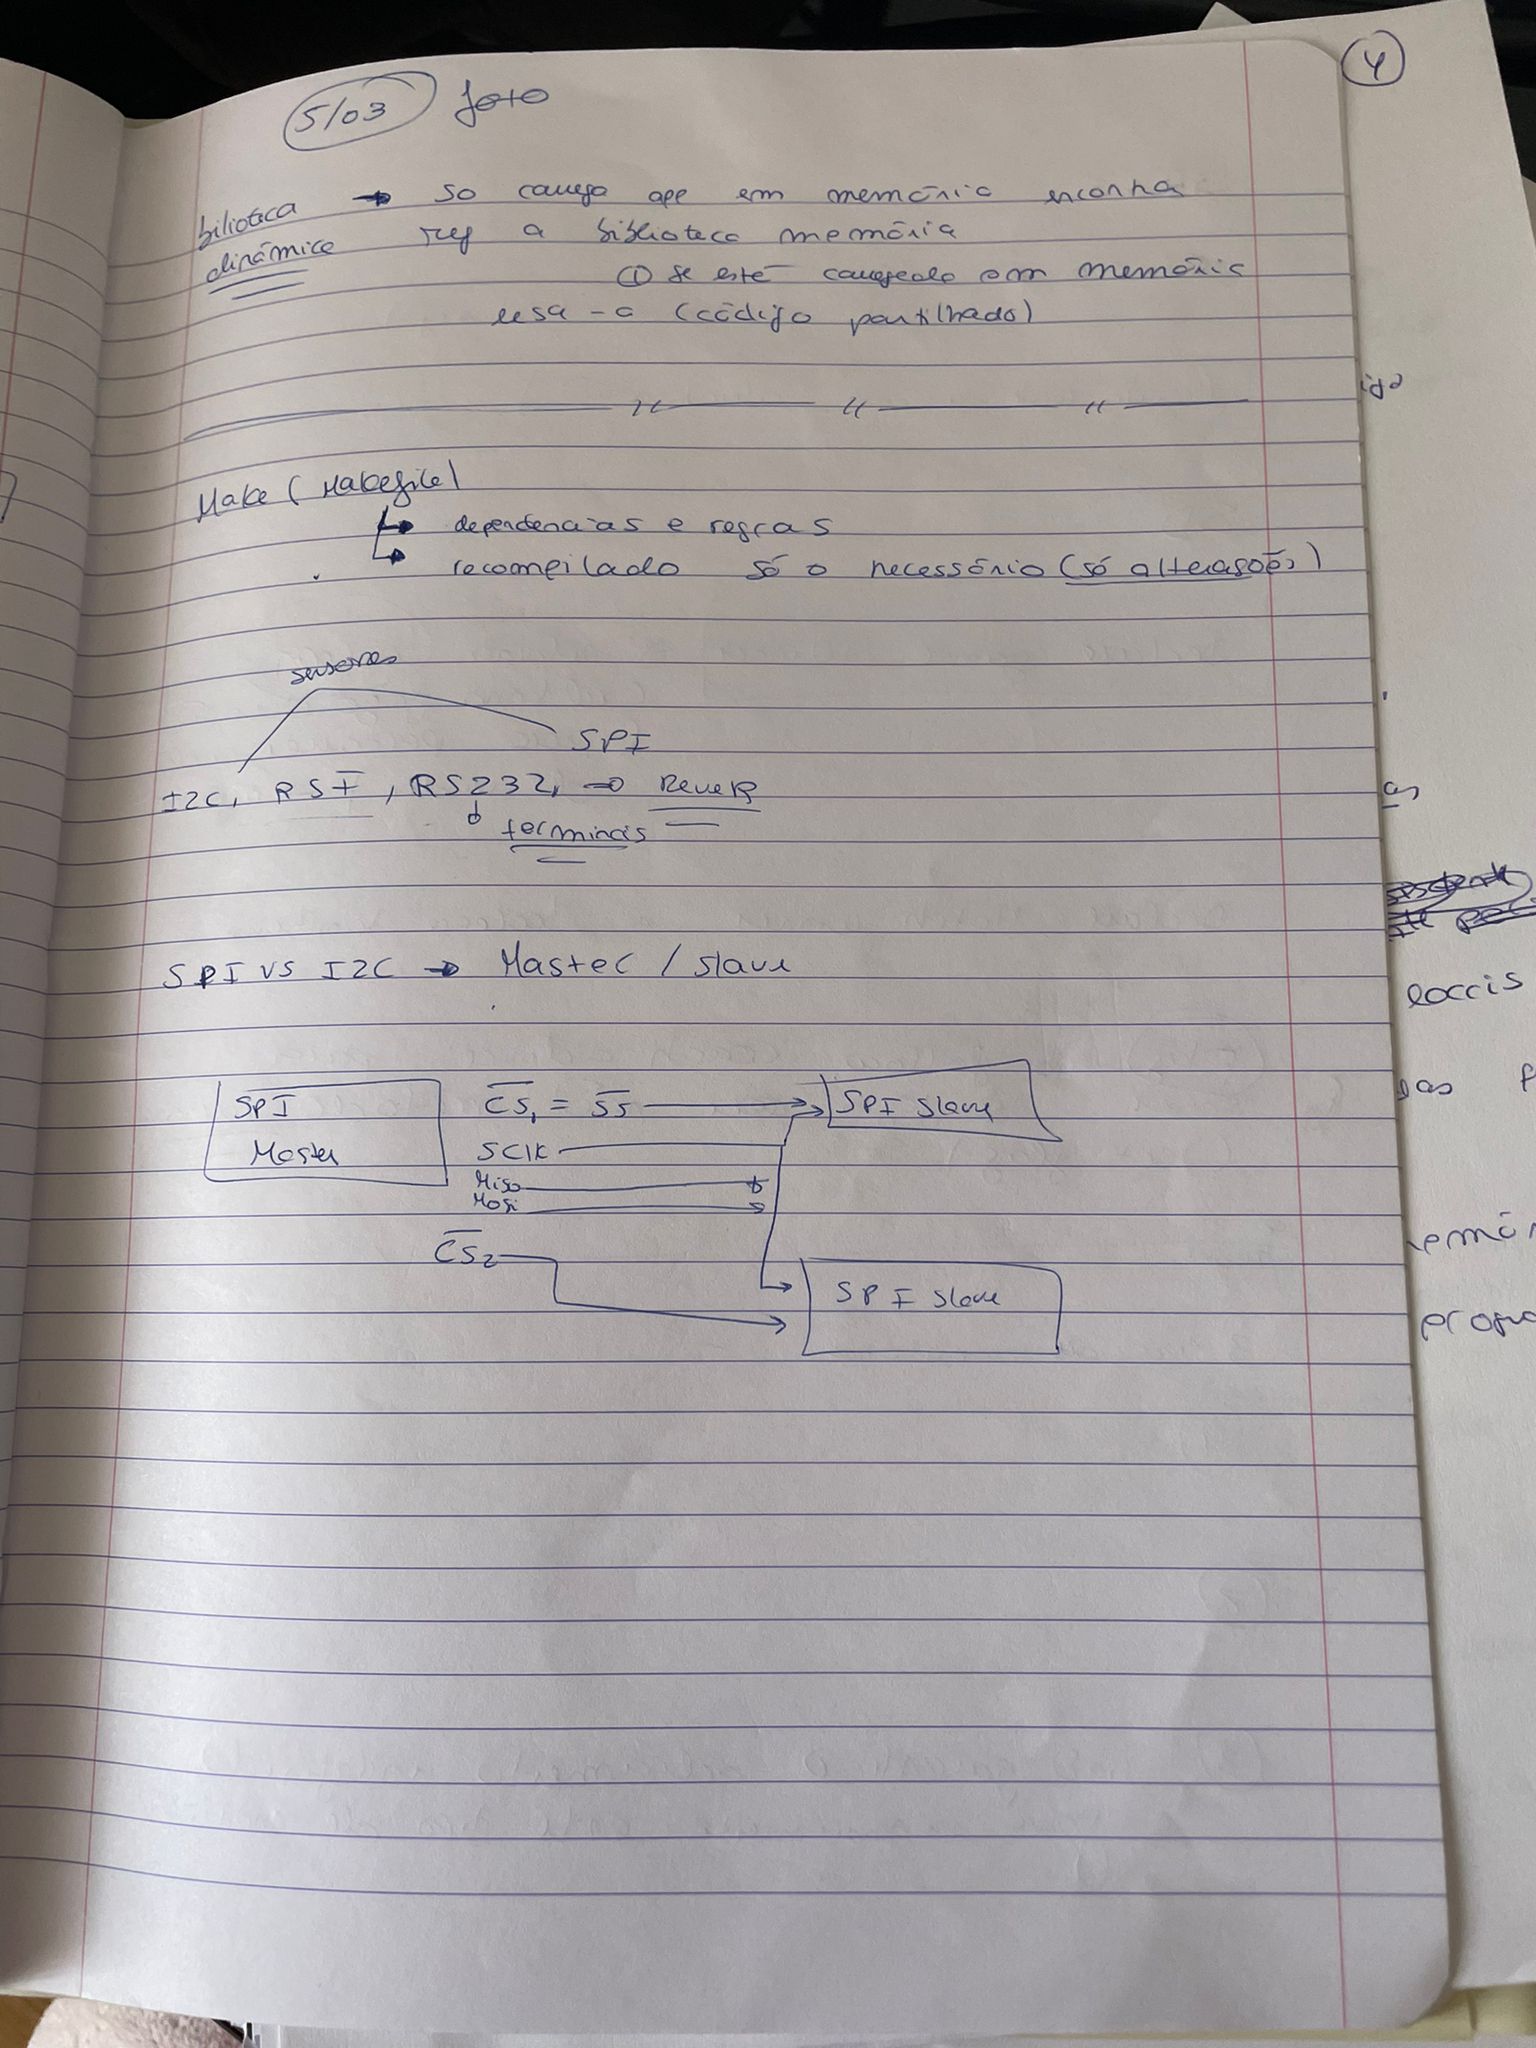 4
5/03 foto
bilioteca → so carrega app em memória encontra
dinâmica ref a biblioteca memória
① se está carregado em memória
usa-a (código partilhado)
Make (Makefile)
↳ dependencias e regras
↳ recompilado só o necessário (só alterações)
sensores
SPI
I2C, RSI, RS232, → Rever
terminais
SPI vs I2C → Master / Slave
SPI
Master
CS1 = SS
SPI Slave
SCLK
Miso
Mosi
CS2
SPI Slave
locais